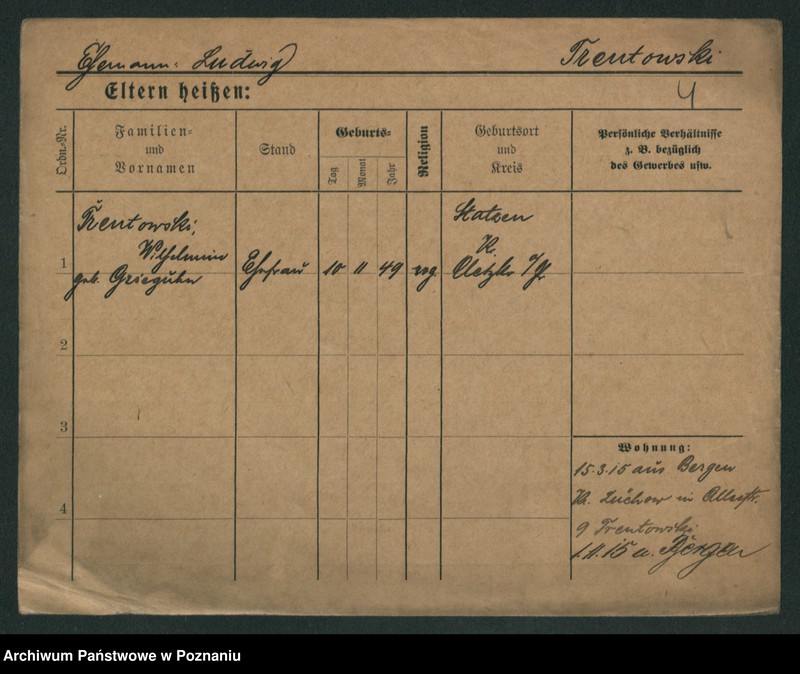 Ehemann: Ludwig Trentowski
Eltern heißen: 4
Ordn.-Nr.
Familien-
und
Vornamen
Stand
Geburts-
Tag
Monat
Jahr
Religion
Geburtsort
und
Kreis
Persönliche Verhältnisse
z. B. bezüglich
des Gewerbes usw.
Trentowski,
Wilhelmine
geb.
1 Ehefrau 10 11 49 evg.
Statzen
Kr.
Oletzko
2
3
4
Wohnung:
15.3.15 aus Bergen
Kr. Lüchow in
9 Trentowski
1.11.15 a. Bergen
Archiwum Państwowe w Poznaniu